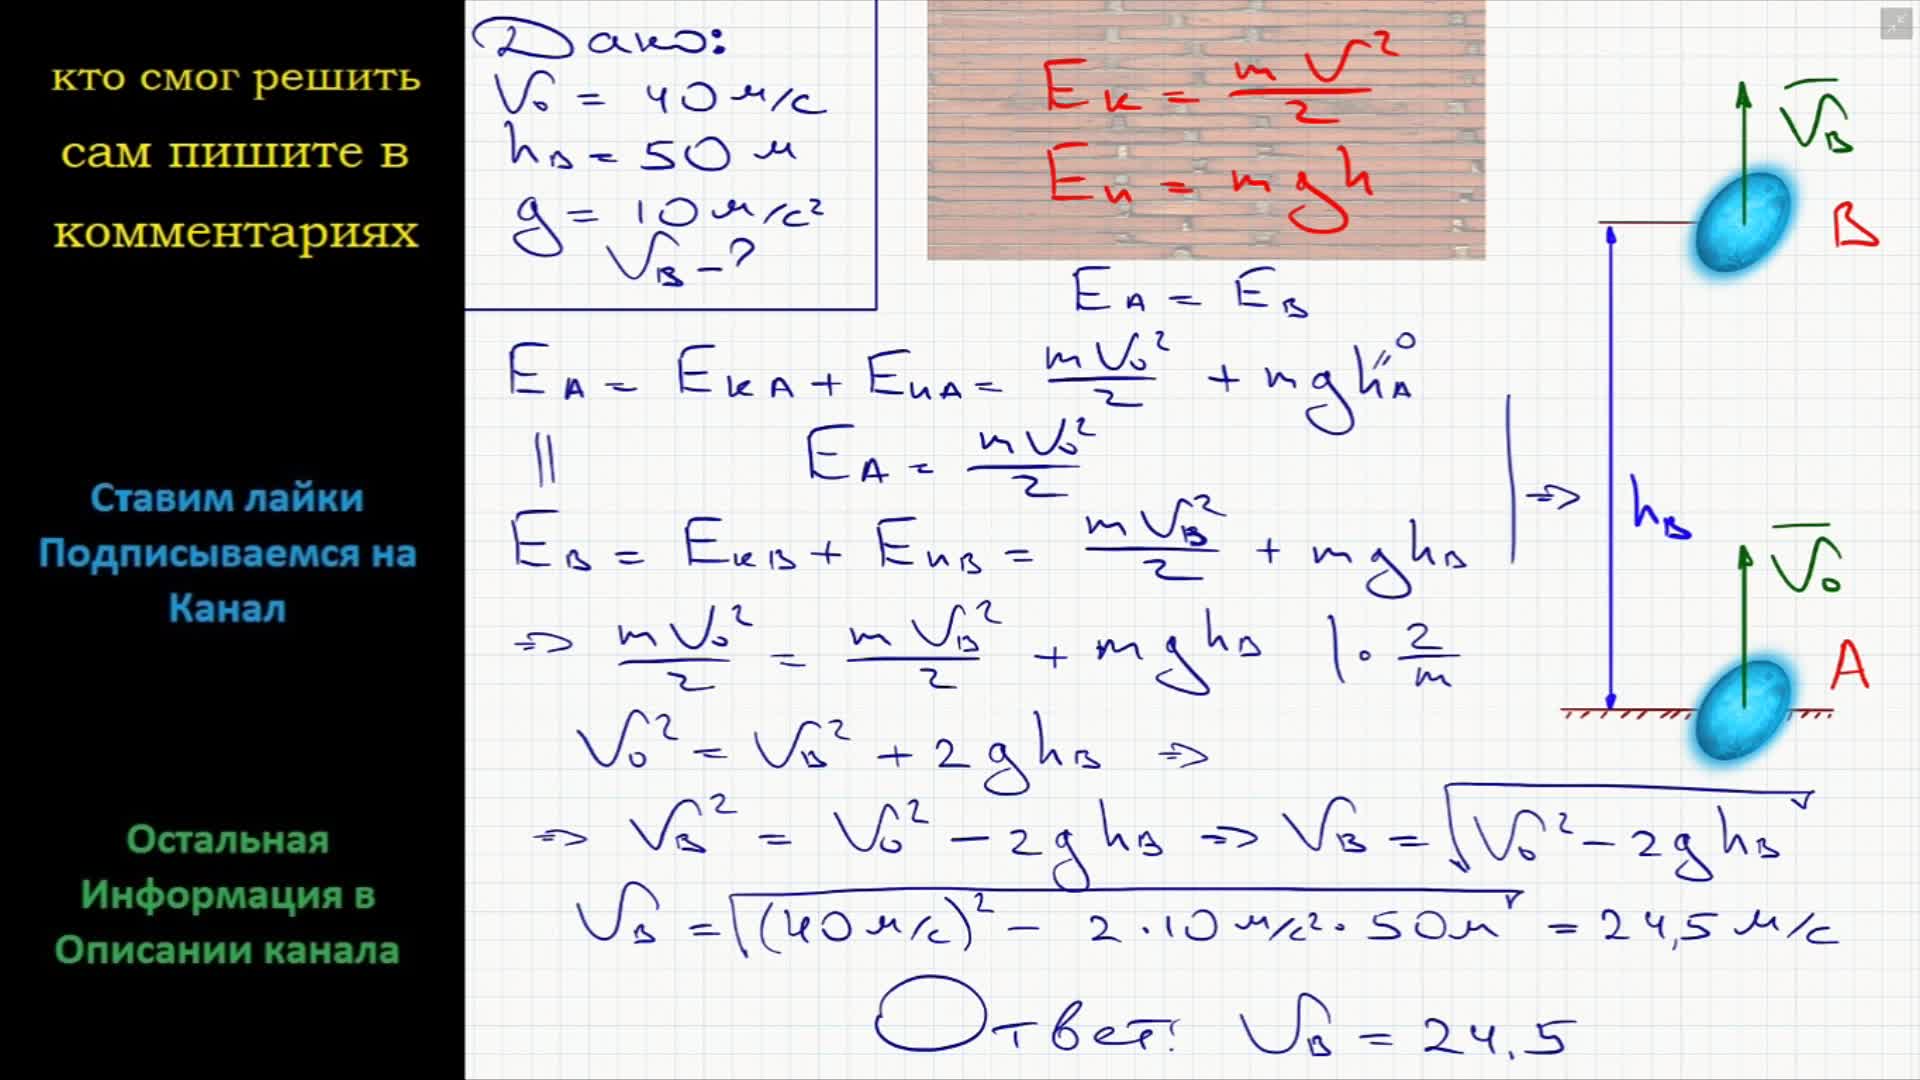 кто смог решить
сам пишите в
комментариях
Ставим лайки
Подписываемся на
Канал
Остальная
Информация в
Описании канала
Дано:
V₀ = 40 м/с
h_B = 50 м
g = 10 м/с²
V_B - ?
E_к = mV²/2
E_п = mgh
E_A = E_B
E_A = E_кA + E_пA = mV₀²/2 + mgh_A = 0
|| E_A = mV₀²/2
E_B = E_кB + E_пB = mV_B²/2 + mgh_B | ⇒
⇒ mV₀²/2 = mV_B²/2 + mgh_B | · 2/m
V₀² = V_B² + 2gh_B ⇒
⇒ V_B² = V₀² - 2gh_B ⇒ V_B = √(V₀² - 2gh_B)
V_B = √((40 м/с)² - 2·10 м/с²·50м) = 24,5 м/с
Ответ: V_B = 24,5
V_B
B
h_B
V₀
A